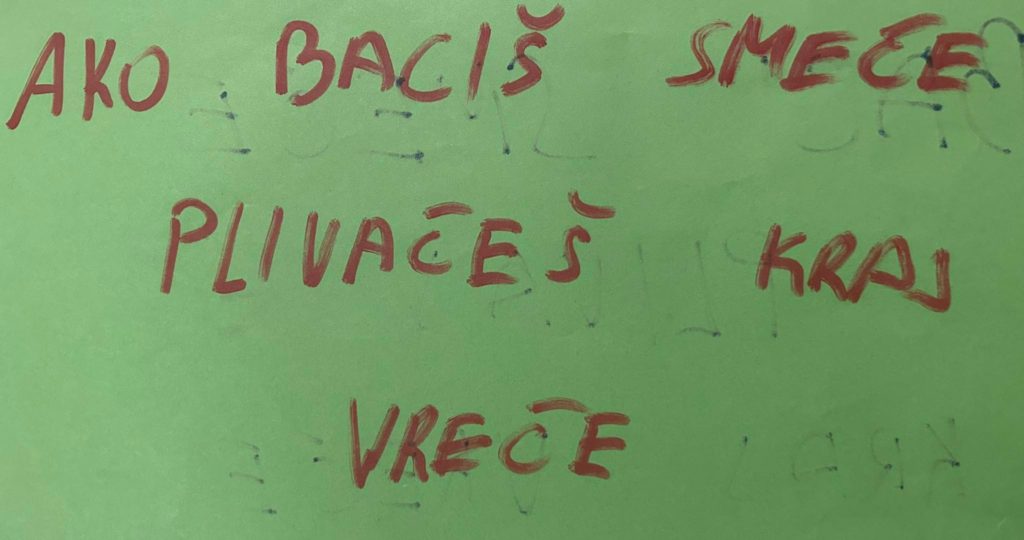 AKO BACIŠ SMEČE
PLIVAČEŠ KRAJ
VREČE